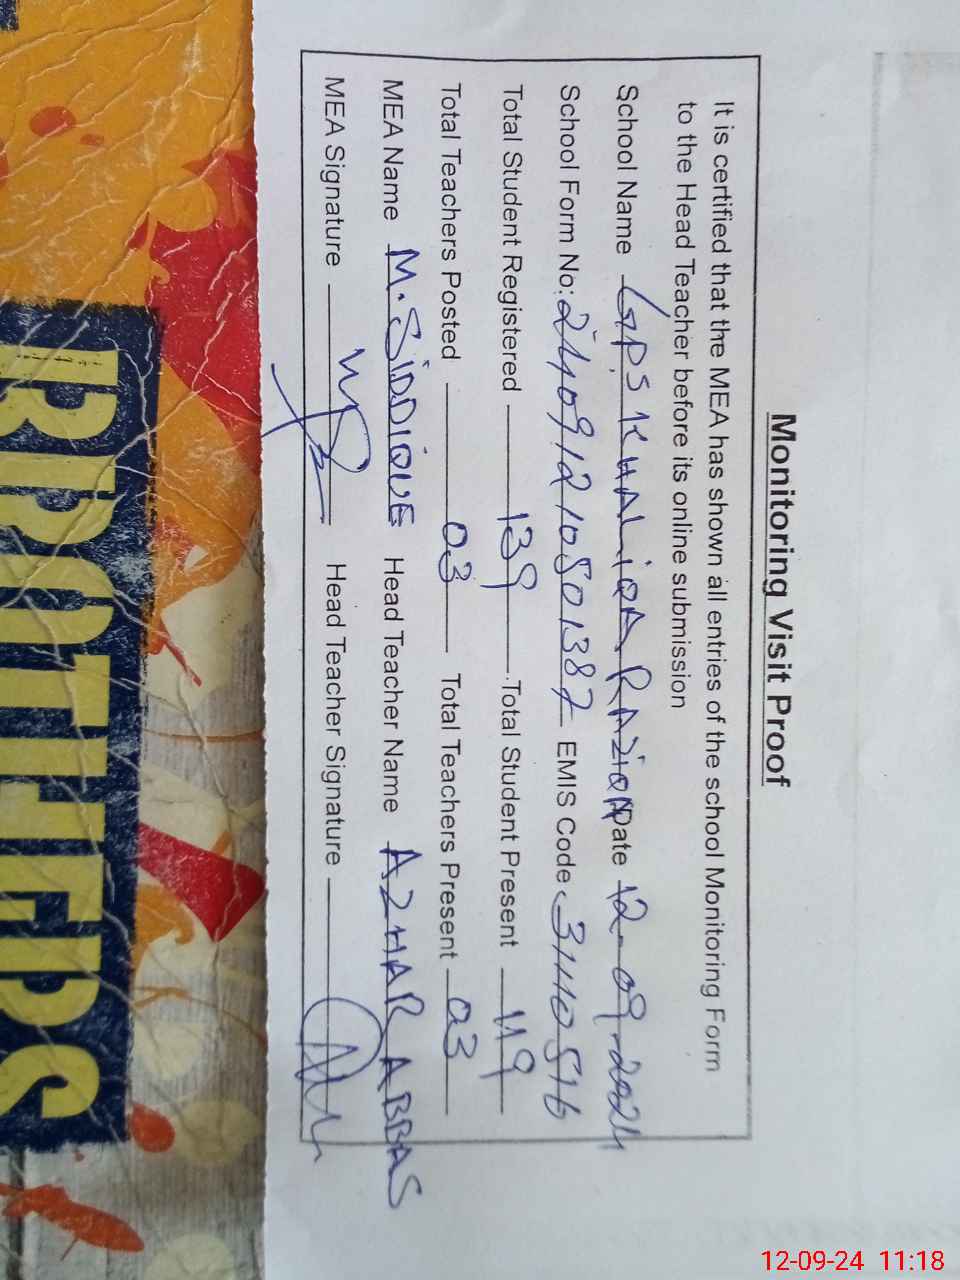 Monitoring Visit Proof
It is certified that the MEA has shown all entries of the school Monitoring Form
to the Head Teacher before its online submission
School Name GPS KHALIQA RAZIQA Date 12-09-2024
School Form No: 24091210801387 EMIS Code 31110516
Total Student Registered 139 Total Student Present 119
Total Teachers Posted 03 Total Teachers Present 03
MEA Name M. SIDDIQUE Head Teacher Name AZHAR ABBAS
MEA Signature Head Teacher Signature
BROTHERS
12-09-24 11:18